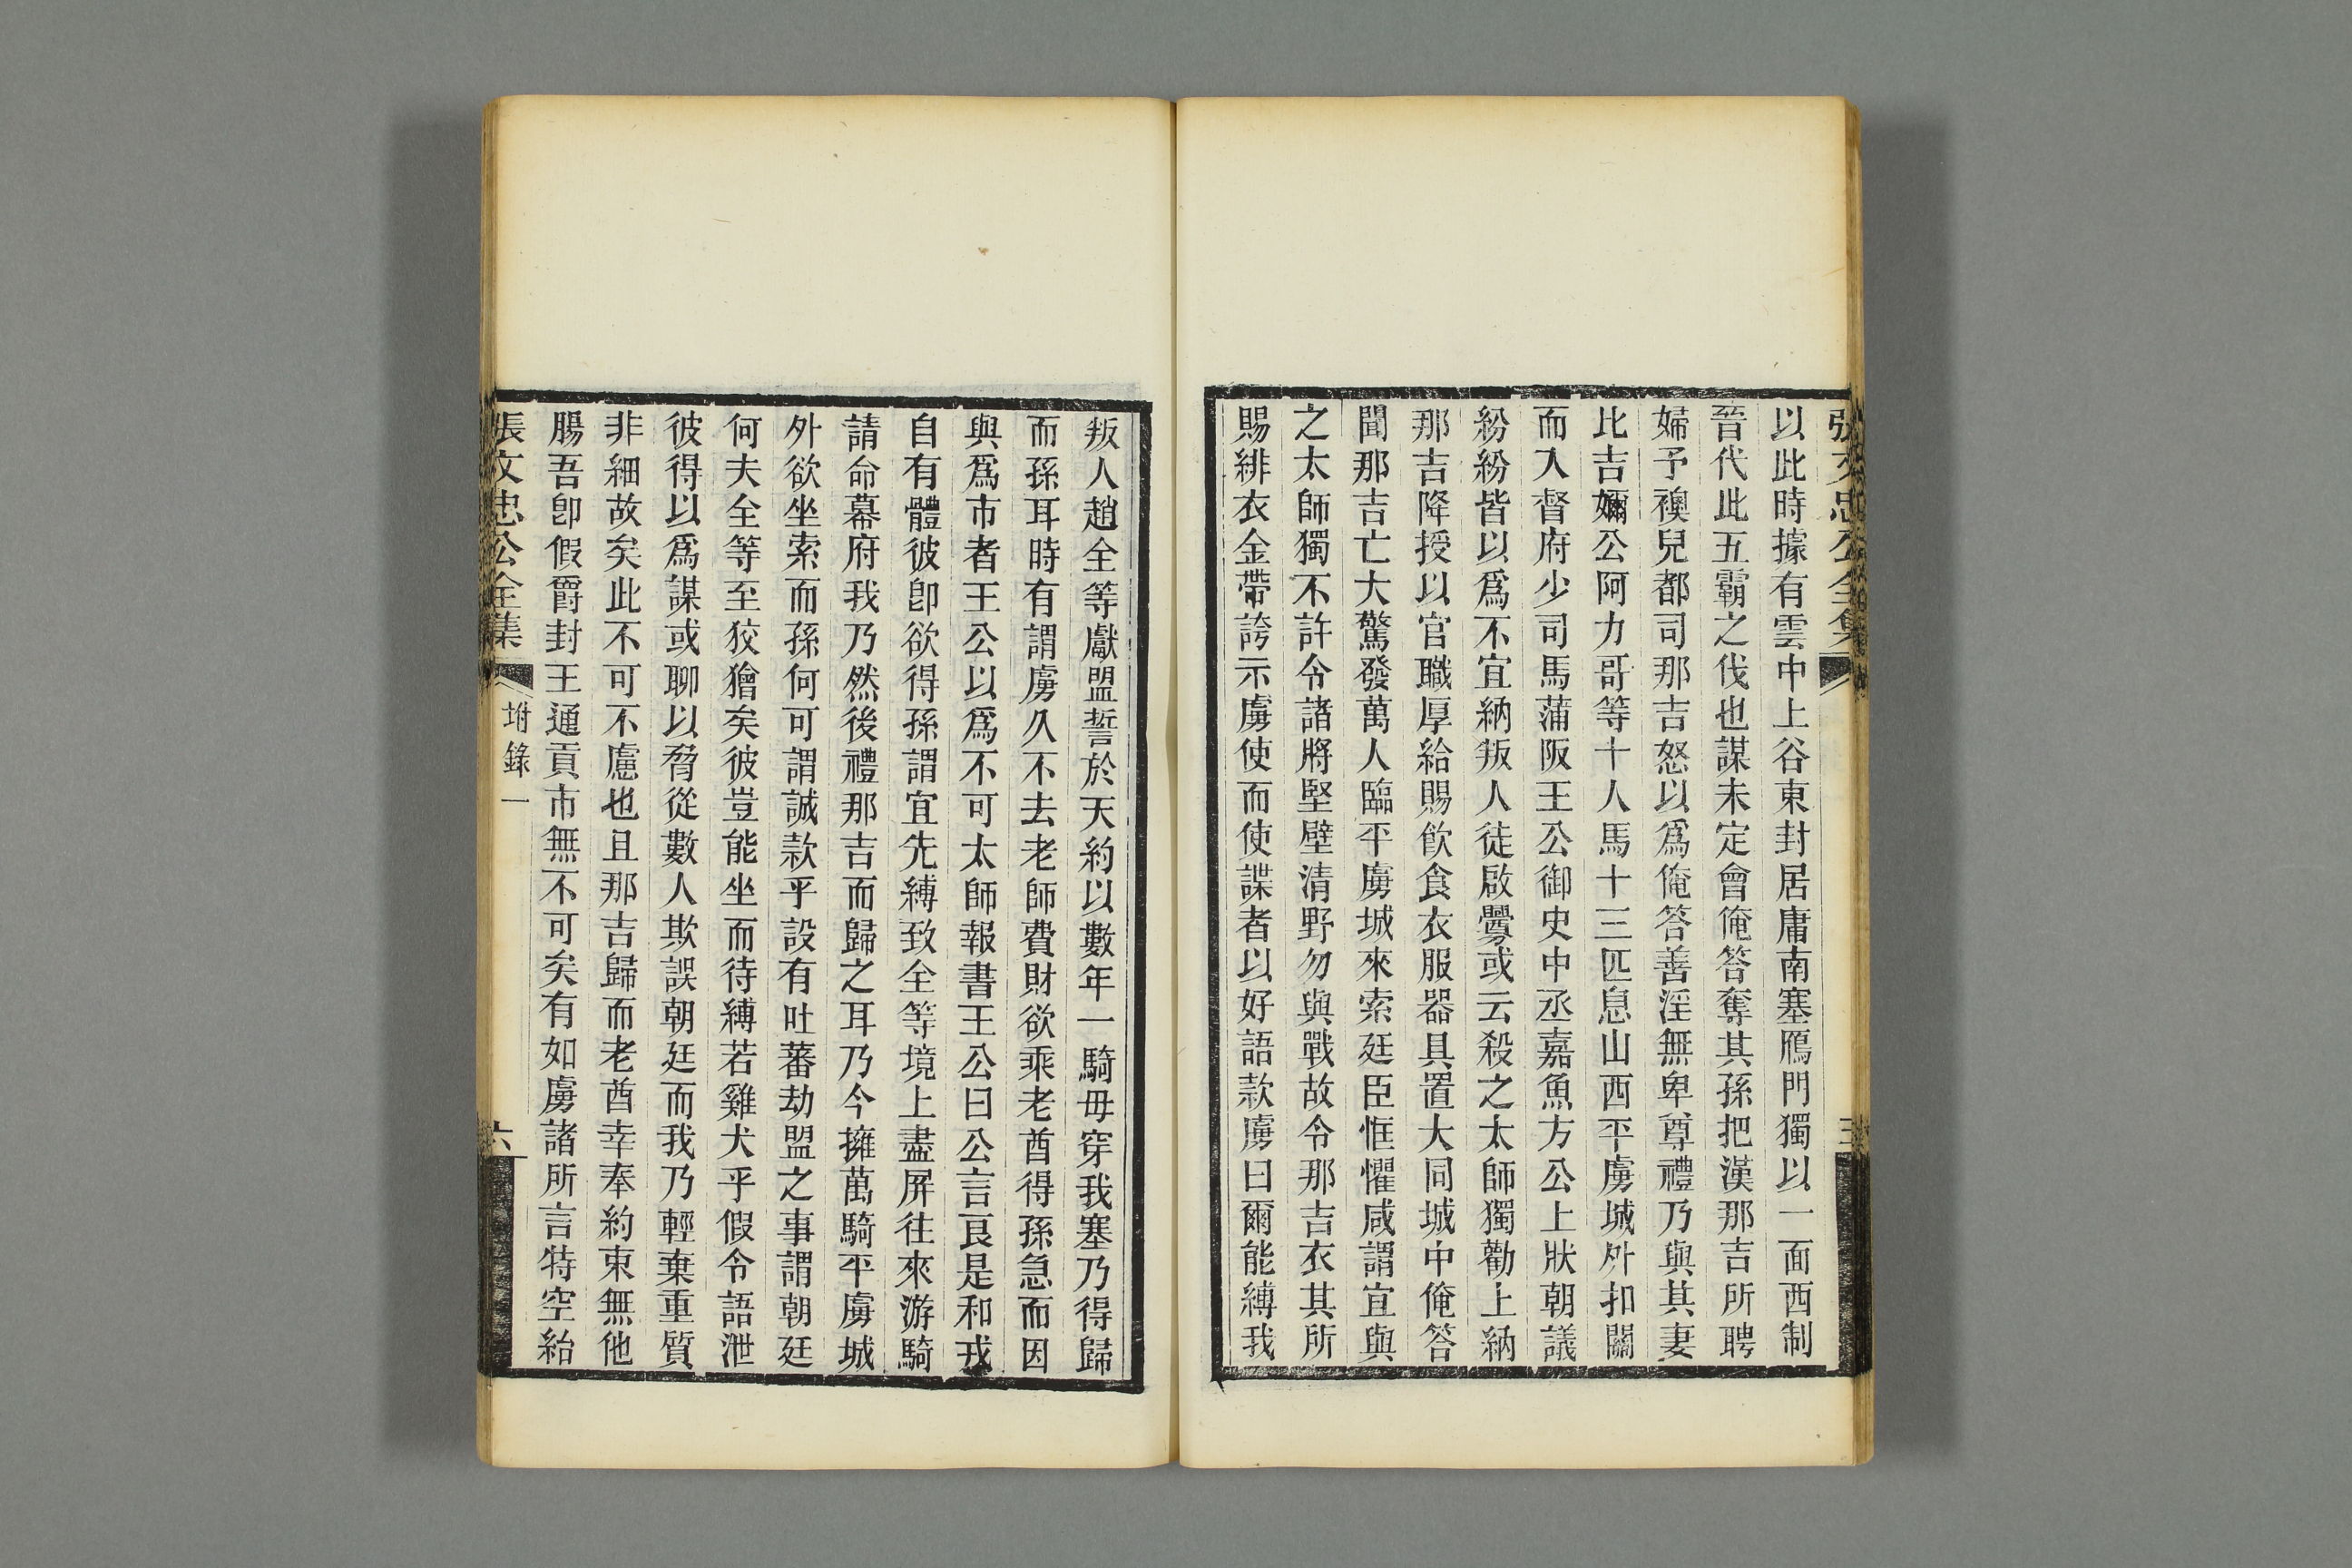 張文忠公全集
以此時據有雲中上谷東封居庸南塞鴈門獨以一面西制
晉代此五霸之伐也謀未定會俺答奪其孫把漢那吉所聘
婦予襖兒都司那吉怒以爲俺答善淫無卑尊禮乃與其妻
比吉嬭公阿力哥等十人馬十三匹息山西平虜城外扣關
而入督府少司馬蒲阪王公御史中丞嘉魚方公上狀朝議
紛紛皆以爲不宜納叛人徒啟釁或云殺之太師獨勸上納
那吉降授以官職厚給賜飲食衣服器具置大同城中俺答
聞那吉亡大驚發萬人臨平虜城來索廷臣恇懼咸謂宜與
之太師獨不許令諸將堅壁清野勿與戰故令那吉衣其所
賜緋衣金帶誇示虜使而使諜者以好語款虜曰爾能縛我
叛人趙全等獻盟誓於天約以數年一騎毋穿我塞乃得歸
而孫耳時有謂虜久不去老師費財欲乘老酋得孫急而因
與爲市者王公以爲不可太師報書王公曰公言良是和戎
自有體彼卽欲得孫謂宜先縛致全等境上盡屏往來游騎
請命幕府我乃然後禮那吉而歸之耳乃今擁萬騎平虜城
外欲坐索而孫何可謂誠款乎設有吐蕃劫盟之事謂朝廷
何夫全等至狡獪矣彼豈能坐而待縛若雞犬乎假令語泄
彼得以爲謀或聊以脅從數人欺誤朝廷而我乃輕棄重質
非細故矣此不可不慮也且那吉歸而老酋幸奉約束無他
腸吾卽假爵封王通貢市無不可矣有如虜諸所言特空紿
張文忠公全集
坿錄一
六